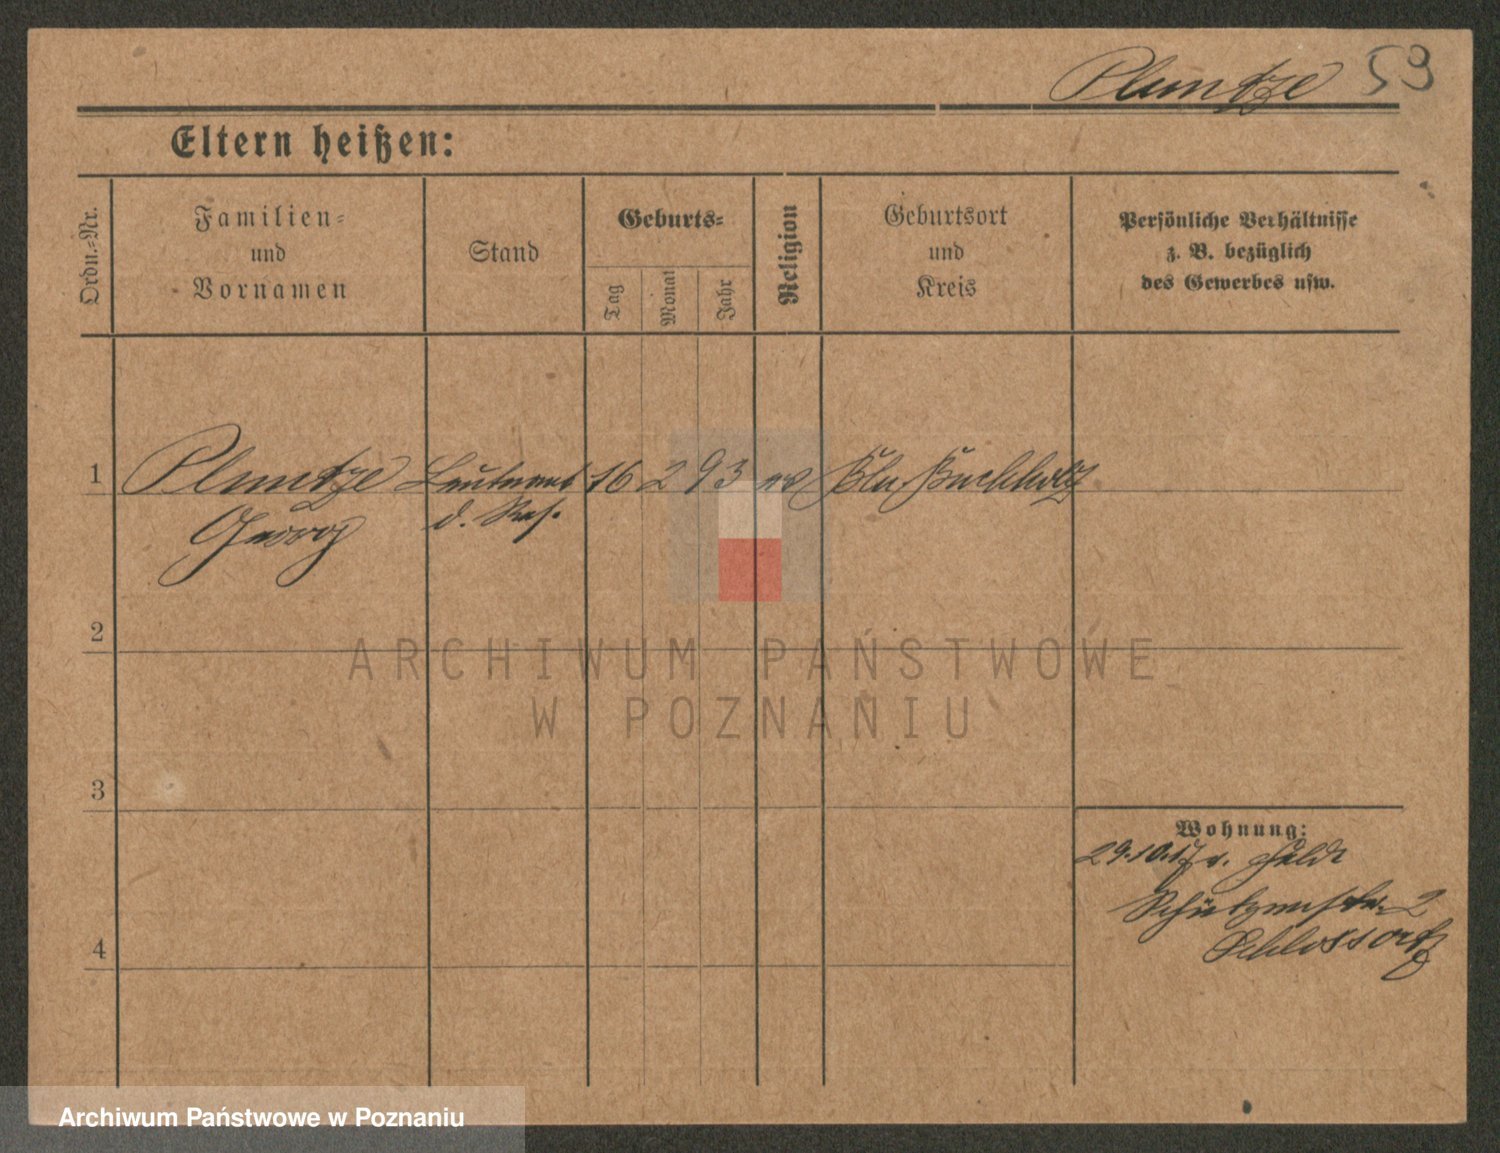 Pluntze 59
Eltern heißen:
Ordn.=Nr.
Familien=
und
Vornamen
Stand
Geburts=
Tag
Monat
Jahr
Religion
Geburtsort
und
Kreis
Persönliche Verhältnisse
z. B. bezüglich
des Gewerbes usw.
1 Pluntze Leutnant 16 2 93 ev Kln Buchholz
Georg d. Res.
2
3
4
Wohnung:
29.10.17 v. Felde
Schützenstr. 2
Schlosser
ARCHIWUM PAŃSTWOWE
W POZNANIU
Archiwum Państwowe w Poznaniu